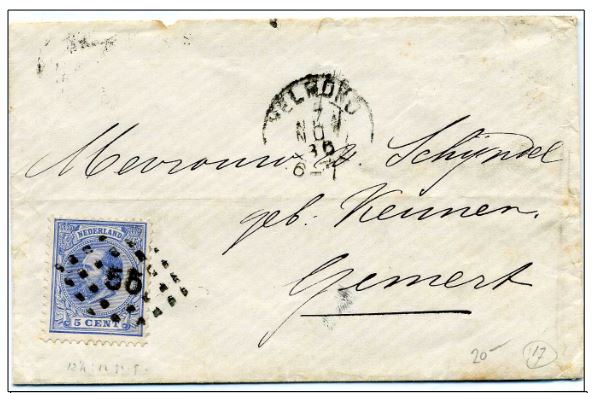 HELMOND
7
NOV
86
6-7
Mevrouw v. Schijndel
geb: Keunen.
Gemert
NEDERLAND
56
5 CENT
20-
17